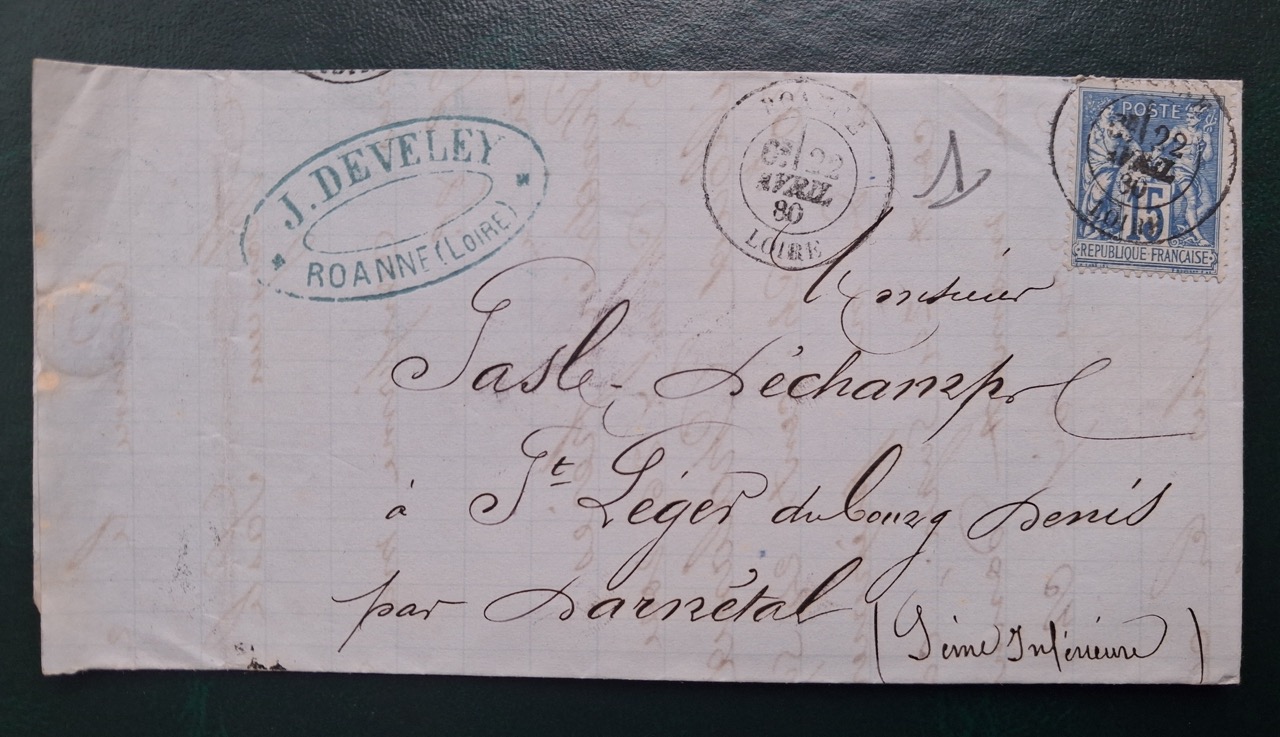 J. DEVELEY
ROANNE (LOIRE)
ROANNE
22
AVRIL
80
LOIRE
1
POSTES
22
AVRIL
80
LOIRE
15
REPUBLIQUE FRANCAISE
Monsieur
Déchamps
à St Léger du bourg Denis
par Darnétal (Seine Inférieure)